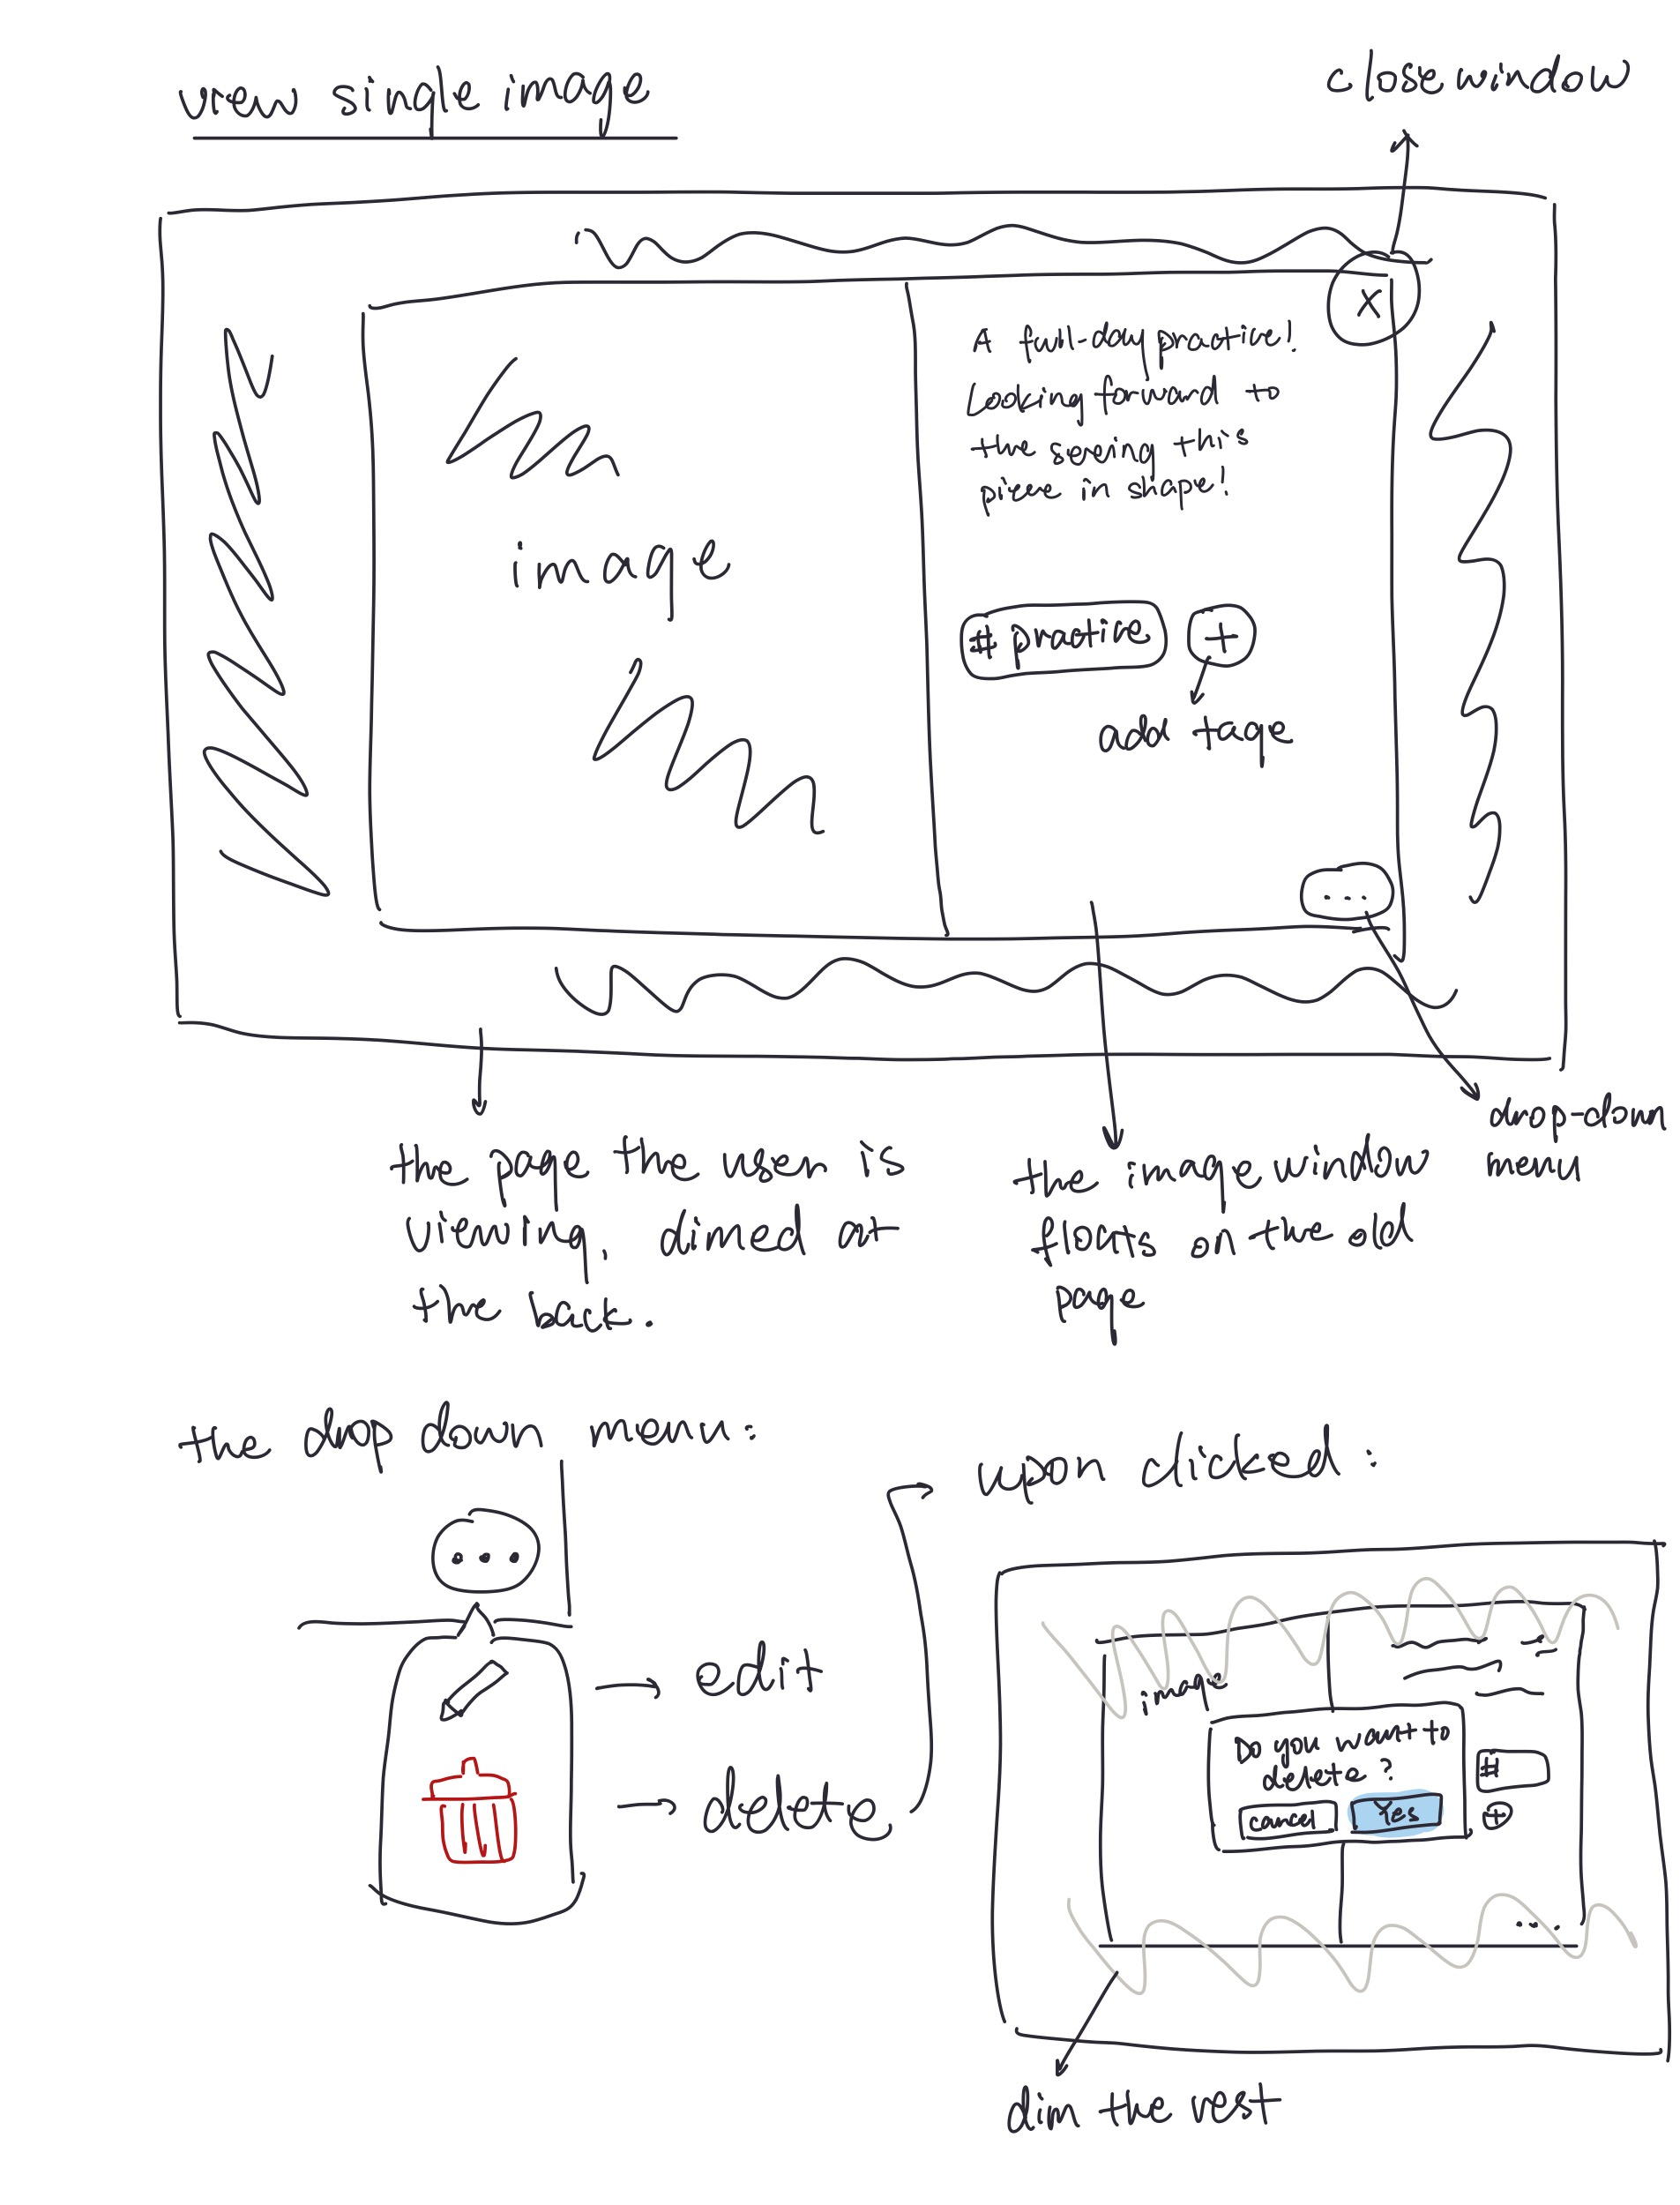 view single image
close window
X
A full-day practice!
Looking forward to
the seeing this
piece in shape!
image
# practice
+
add tage
...
drop-down
menu
the page the user is
viewing. dimed at
the back.
the image window
floats on the old
page
the drop down menu:
...
edit
delete
upon clicked:
image
Do you want to
delete?
#
cancel
Yes
+
...
dim the rest